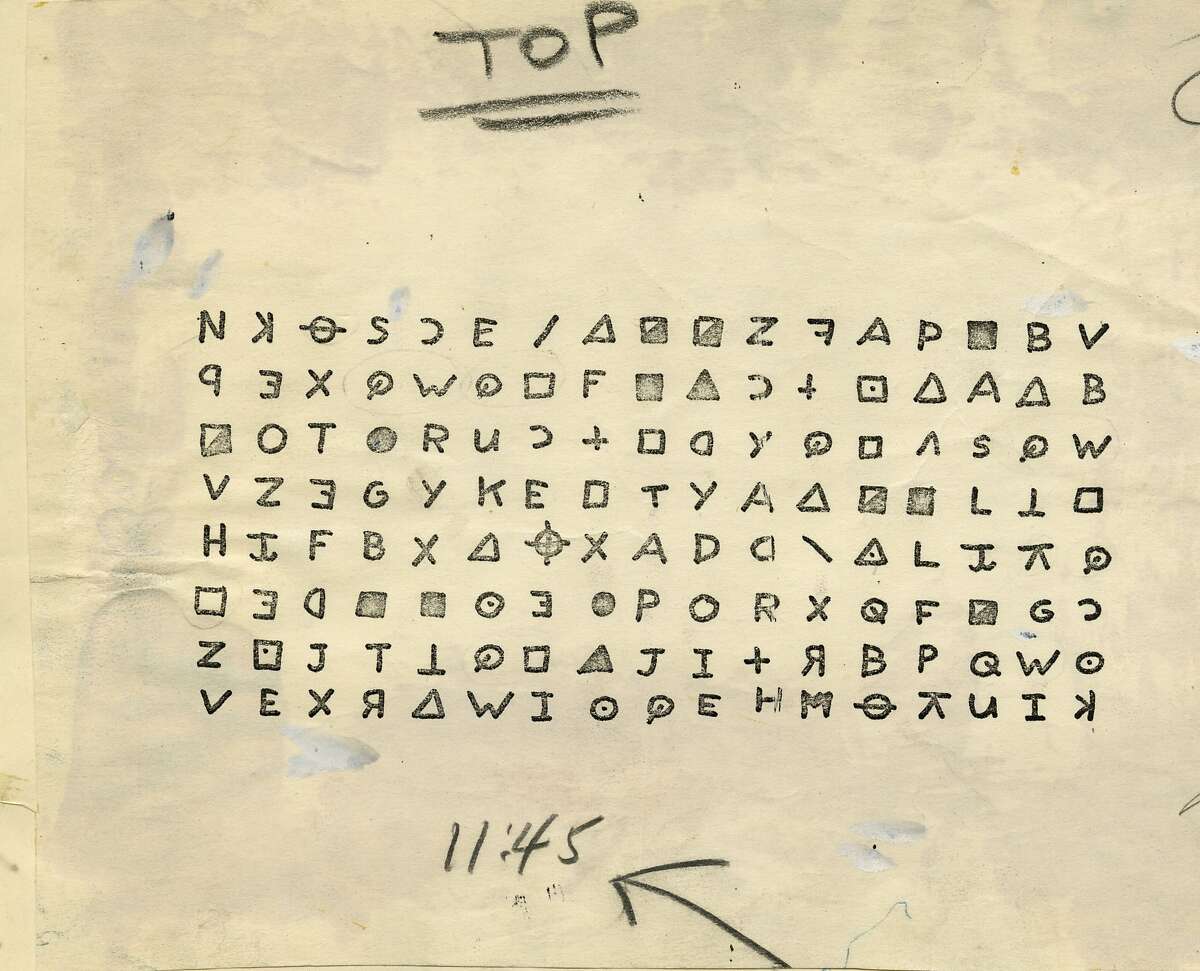 TOP
N ꓘ ⊖ S Ɔ E / △ ◪ ◪ Z ꟻ A P ■ B V
q Ǝ X ⌕ W ⌕ □ F ■ ▲ Ɔ + ⊡ △ A △ B
◪ O T ● R U Ɔ + □ ᗡ Y ⌕ □ Λ S ⌕ W
V Z Ǝ G Y K E □ T Y A △ ◪ ■ L ⊥ □
H I F B X △ ⌖ X A D ᗡ \ ◬ L I ⊼ ⌕
□ Ǝ ᗡ ■ ■ ⊙ Ǝ ● P O R X Q F ◪ G Ɔ
Z ⊡ J T ⊥ ⌕ □ ▲ J I + Я B P Q W ⊙
V E X Я △ W I ⊙ ⌕ E H M ⊖ ⊼ U I ꓘ
11:45